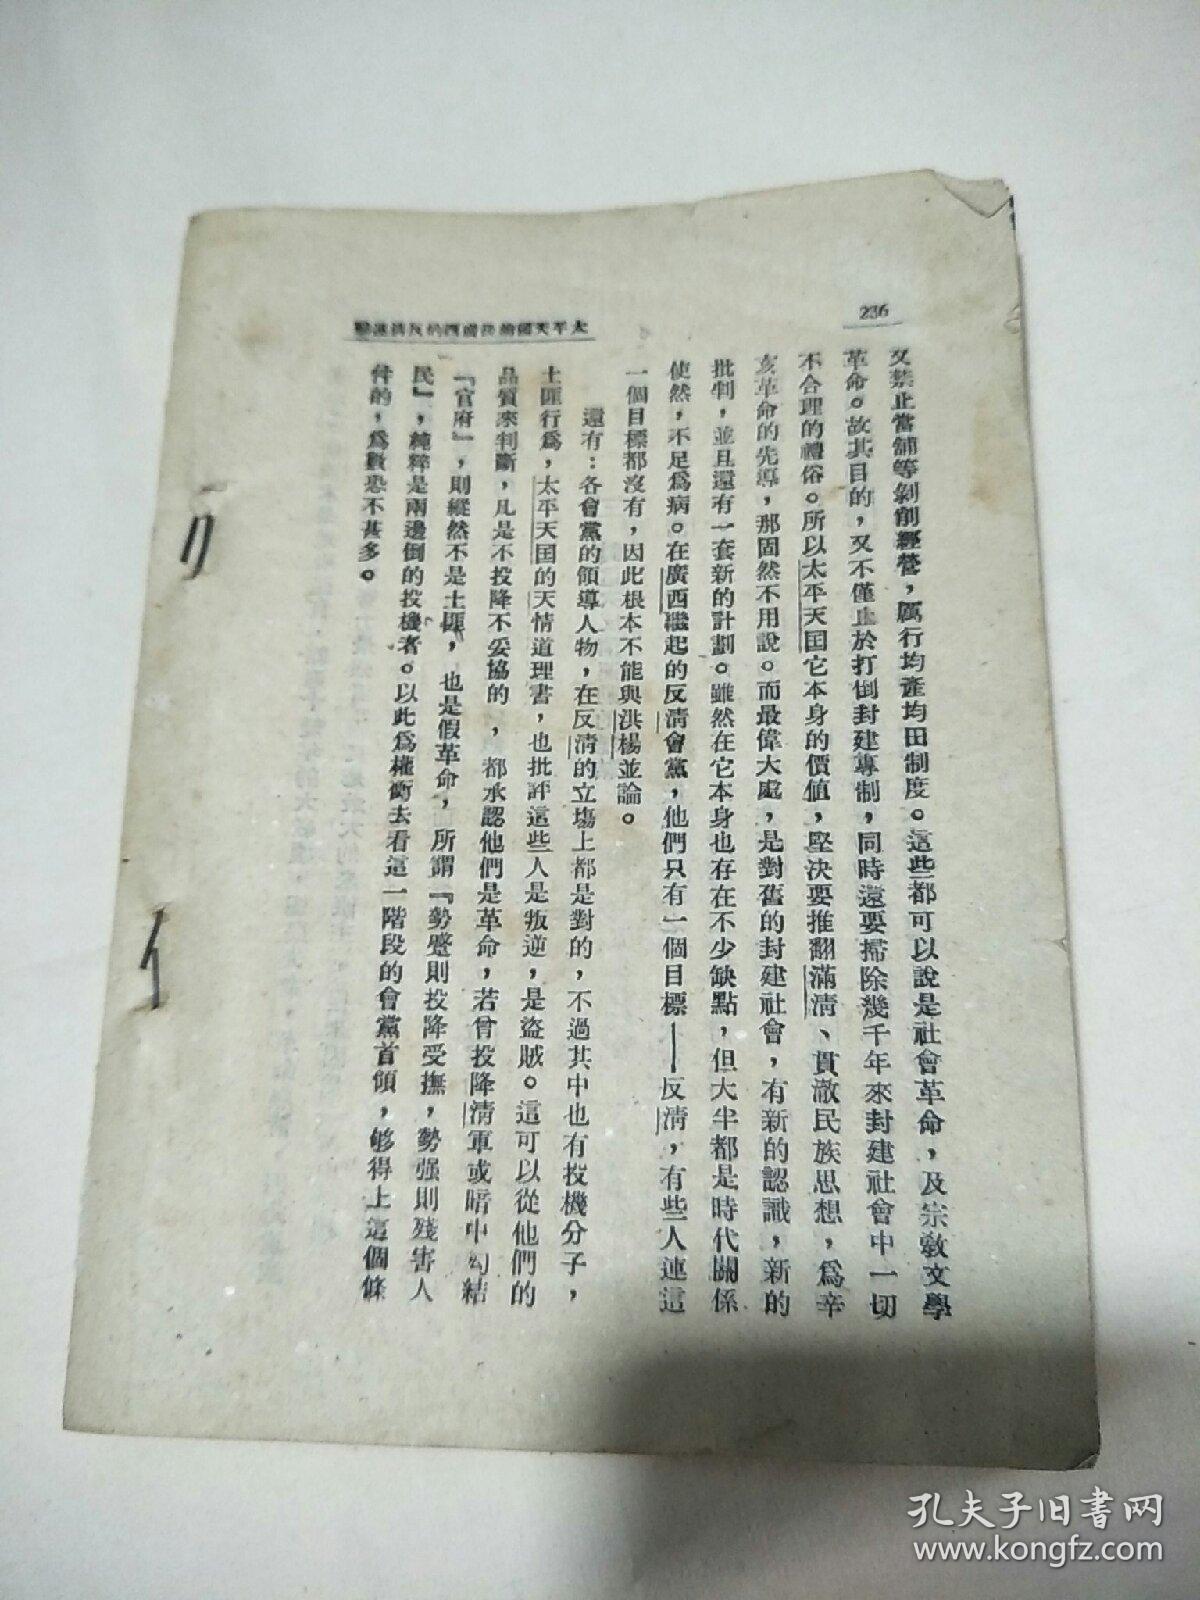 236
又禁止當舖等剝削經營，厲行均產均田制度。這些都可以說是社會革命，及宗教文學
革命。故其目的，又不僅止於打倒封建專制，同時還要掃除幾千年來封建社會中一切
不合理的禮俗。所以太平天囯它本身的價值，堅決要推翻滿清、貫澈民族思想，爲辛
亥革命的先導，那固然不用說。而最偉大處，是對舊的封建社會，有新的認識，新的
批判，並且還有一套新的計劃。雖然在它本身也存在不少缺點，但大半都是時代關係
使然，不足爲病。在廣西繼起的反清會黨，他們只有一個目標——反清，有些人連這
一個目標都沒有，因此根本不能與洪楊並論。
還有：各會黨的領導人物，在反清的立場上都是對的，不過其中也有投機分子，
土匪行爲，太平天囯的天情道理書，也批評這些人是叛逆，是盜賊。這可以從他們的
品質來判斷，凡是不投降不妥協的，都承認他們是革命，若曾投降清軍或暗中勾結
『官府』，則縱然不是土匪，也是假革命，所謂『勢蹙則投降受撫，勢强則殘害人
民』，純粹是兩邊倒的投機者。以此爲權衡去看這一階段的會黨首領，够得上這個條
件的，爲數恐不甚多。
孔夫子旧书网
www.kongfz.com